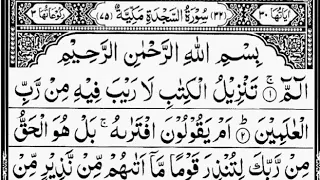 اٰیَاتُهَا ٣٠ (٣٢) سُوْرَةُ السَّجْدَةِ مَكِّيَّةٌ (٧٥) رُكُوْعَاتُهَا ٣
بِسْمِ اللّٰهِ الرَّحْمٰنِ الرَّحِيْمِ
الٓمّٓ ۚ﴿١﴾ تَنْزِيْلُ الْكِتٰبِ لَا رَيْبَ فِيْهِ مِنْ رَّبِّ
الْعٰلَمِيْنَ ؕ﴿٢﴾ اَمْ يَقُوْلُوْنَ افْتَرٰىهُ ۚ بَلْ هُوَ الْحَقُّ
مِنْ رَّبِّكَ لِتُنْذِرَ قَوْمًا مَّاۤ اَتٰىهُمْ مِّنْ نَّذِيْرٍ مِّنْ